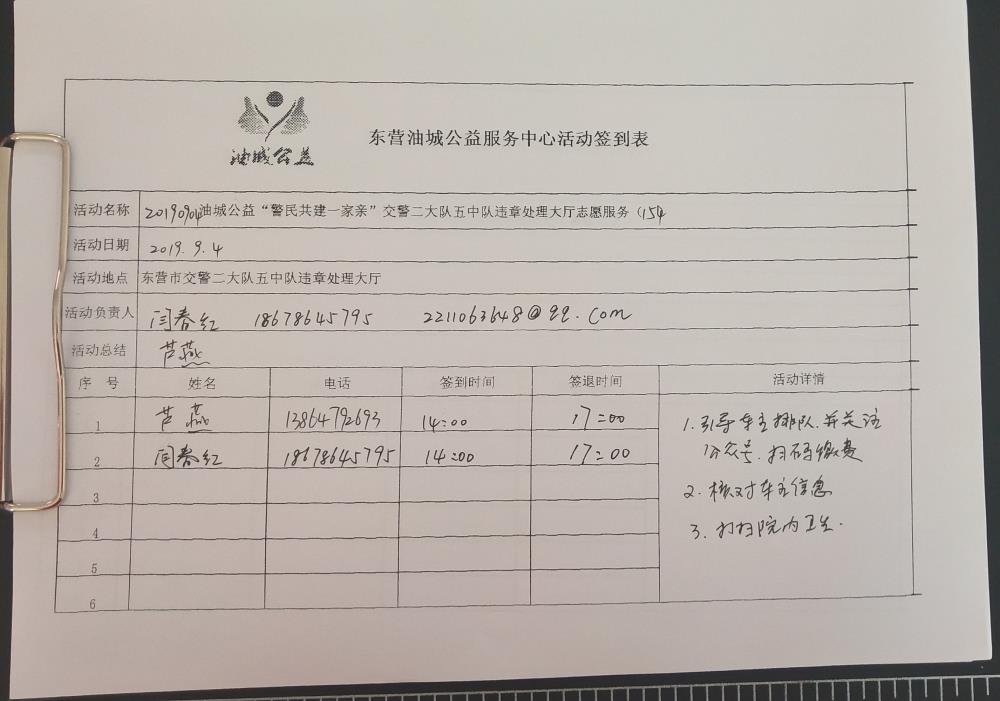 油城公益
东营油城公益服务中心活动签到表
活动名称 20190904油城公益“警民共建一家亲”交警二大队五中队违章处理大厅志愿服务（154
活动日期 2019.9.4
活动地点 东营市交警二大队五中队违章处理大厅
活动负责人 闫春红 18678645795 2211063648@qq.com
活动总结 芦燕
序号 姓名 电话 签到时间 签退时间 活动详情
1 芦燕 13864792693 14:00 17:00 1.引导车主排队.并关注
2 闫春红 18678645795 14:00 17:00 公众号.扫码缴费
3 2.核对车主信息
4 3.打扫院内卫生.
5
6